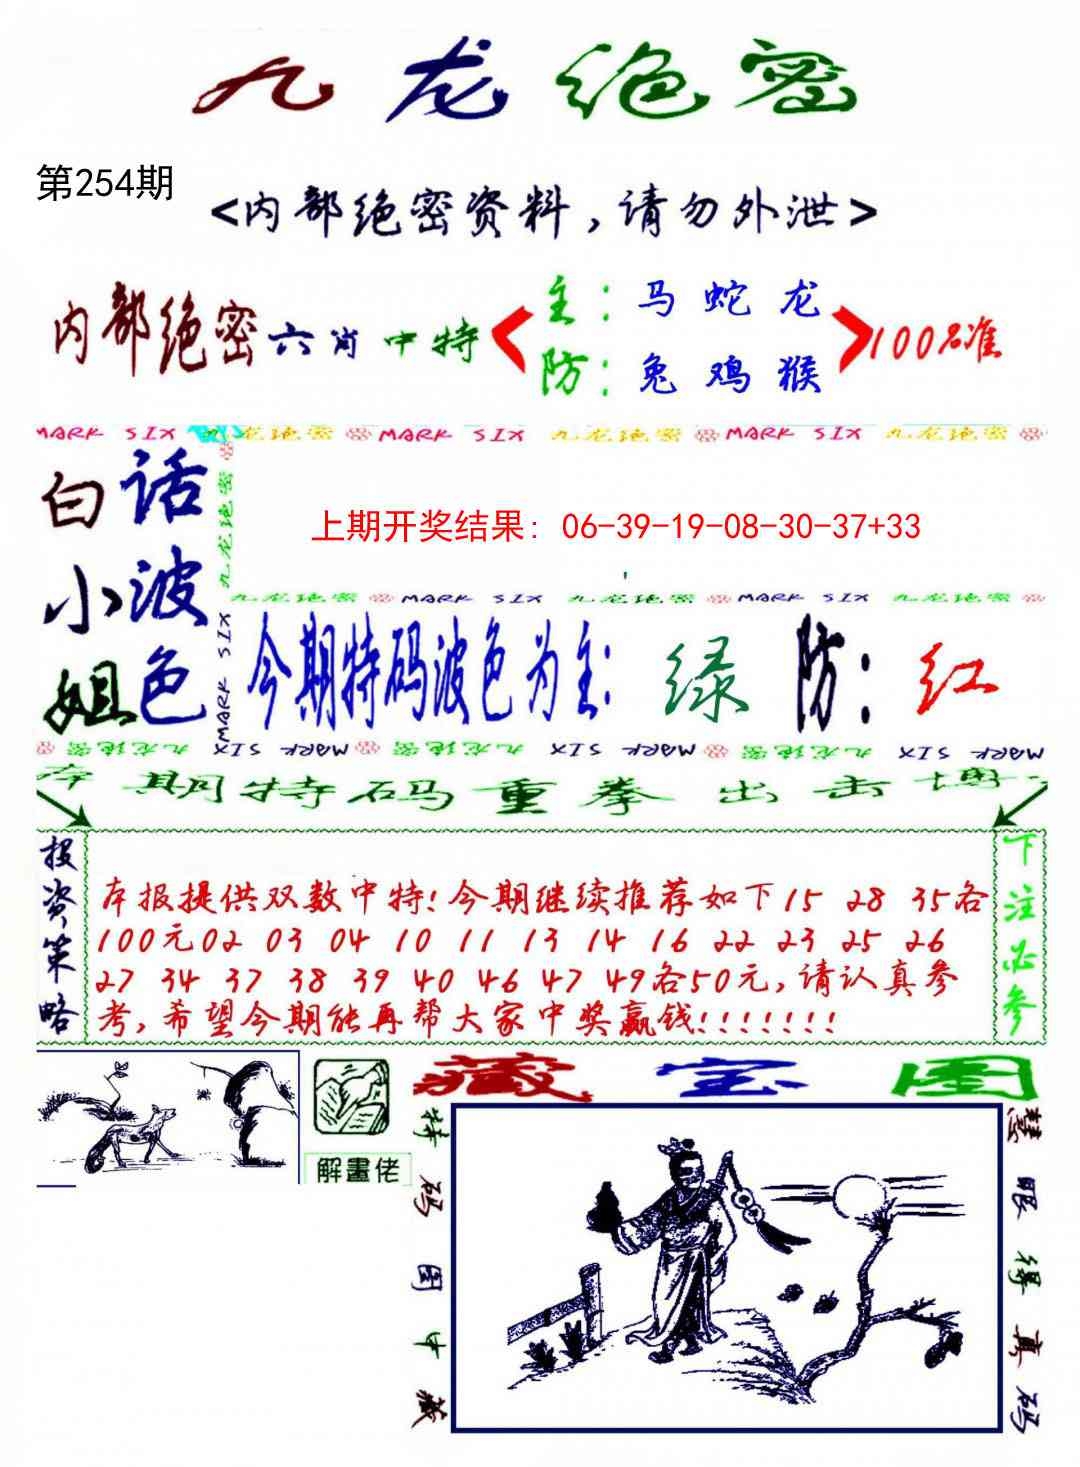 九龙绝密
第254期
<内部绝密资料,请勿外泄>
内部绝密六肖中特
主:马 蛇 龙
防:兔 鸡 猴
100%准
MARK SIX 九龙绝密 MARK SIX 九龙绝密 MARK SIX 九龙绝密
九龙绝密
MARK SIX
白小姐
话波色
上期开奖结果: 06-39-19-08-30-37+33
九龙绝密 MARK SIX 九龙绝密 MARK SIX 九龙绝密
今期特码波色为主: 绿 防: 红
九龙绝密 MARK SIX 九龙绝密 MARK SIX 九龙绝密 MARK SIX
本期特码重拳出击博
投资策略
本报提供双数中特!今期继续推荐如下15 28 35各
100元02 03 04 10 11 13 14 16 22 23 25 26
27 34 37 38 39 40 46 47 49各50元,请认真参
考,希望今期能再帮大家中奖赢钱!!!!!!!
下注必参
解畫佬
藏宝图
特码图中藏
慧眼得真码